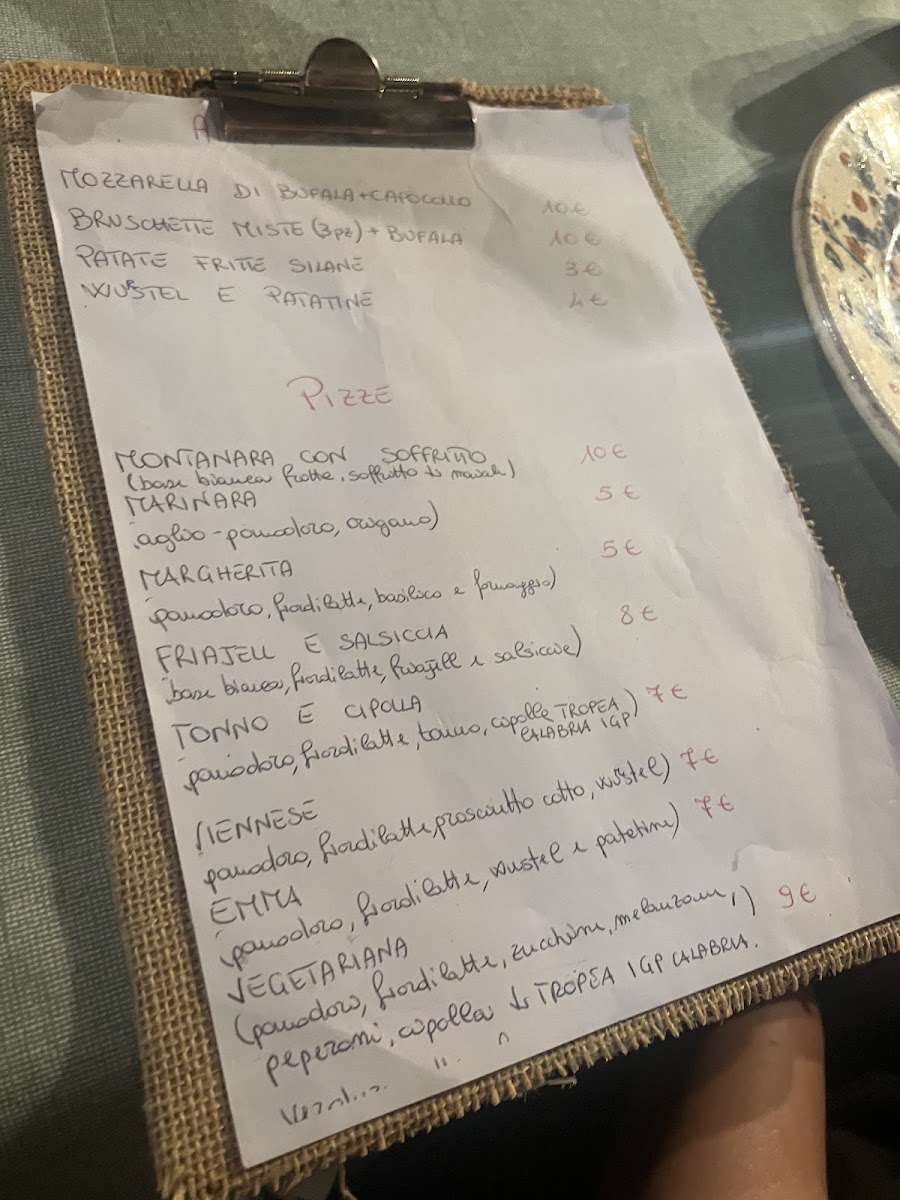 A
MOZZARELLA DI BUFALA+CAPOCOLLO 10€
BRUSCHETTE MISTE (3pz) + BUFALA 10€
PATATE FRITTE SILANE 3€
WUSTEL E PATATINE 4€
PIZZE
MONTANARA CON SOFFRITTO 10€
(base bianca fritta, soffritto di maiale)
MARINARA 5€
aglio-pomodoro, origano)
MARGHERITA 5€
pomodoro, fiordilatte, basilico e formaggio)
FRIAJELL E SALSICCIA 8€
base bianca, fiordilatte, friajell e salsiccia)
TONNO E CIPOLLA
pomodoro, fiordilatte, tonno, cipolla TROPEA) 7€
CALABRIA IGP
VIENNESE
pomodoro, fiordilatte, prosciutto cotto, wustel) 7€
EMMA
pomodoro, fiordilatte, wustel e patatine) 7€
VEGETARIANA
(pomodoro, fiordilatte, zucchine, melanzane,) 9€
peperoni, cipolla di TROPEA IGP CALABRIA.